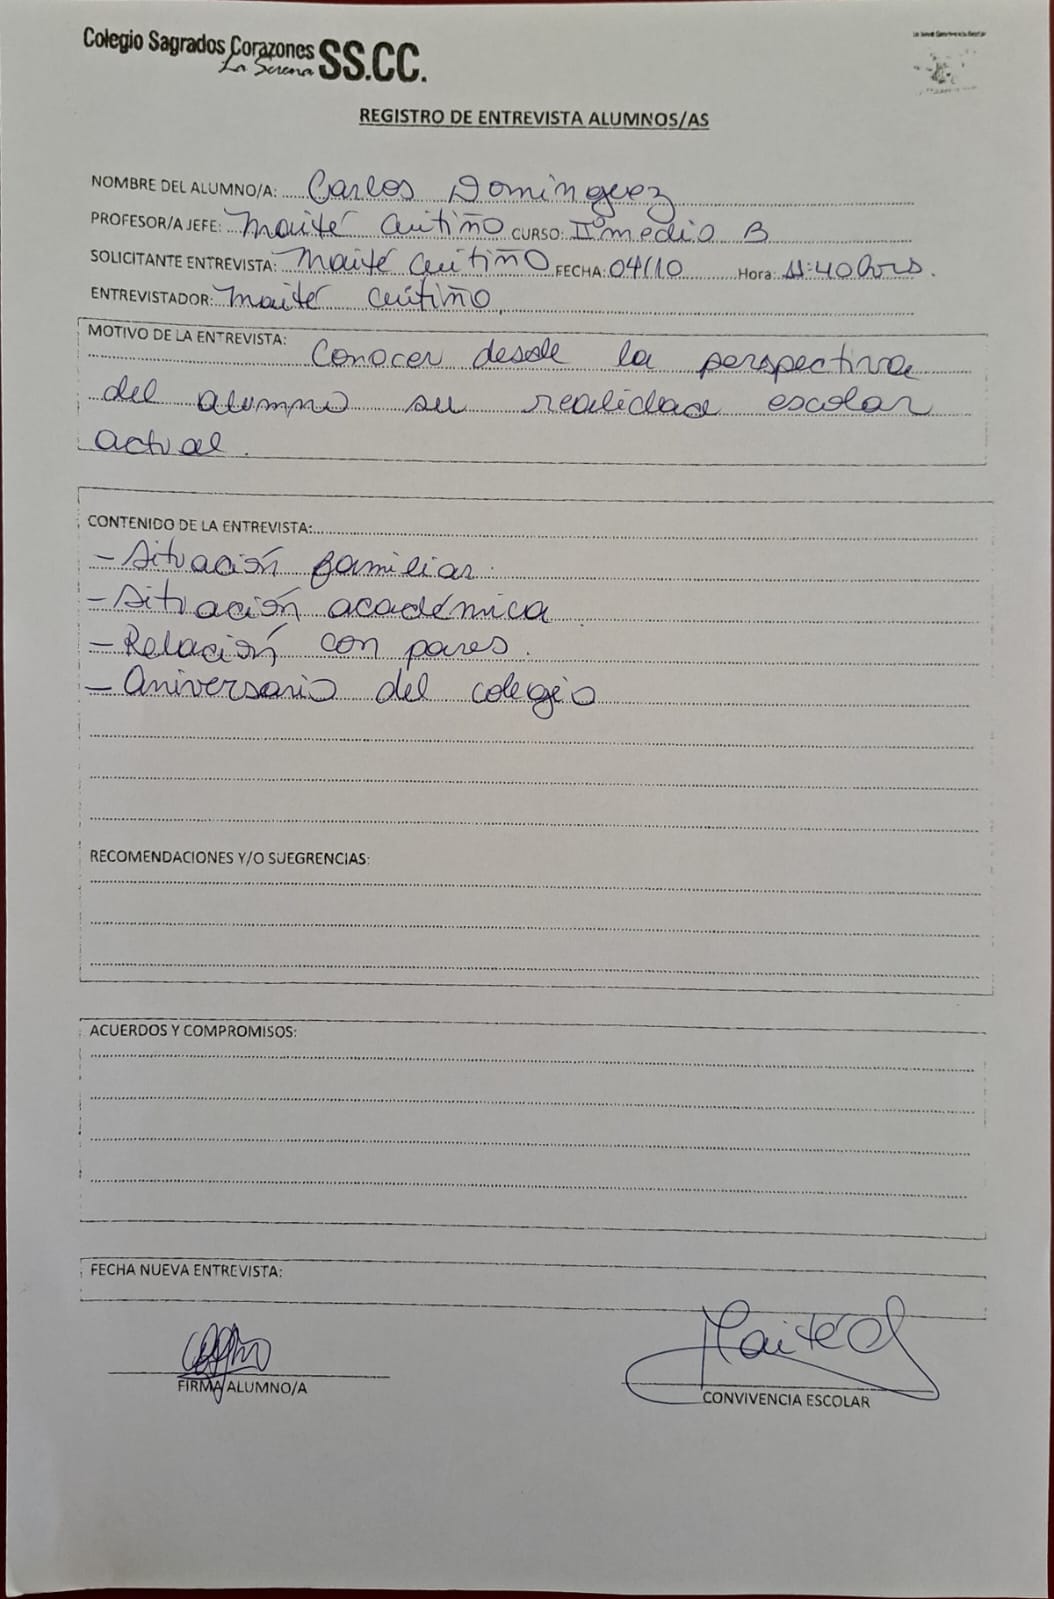 Colegio Sagrados Corazones SS.CC.
La Serena
REGISTRO DE ENTREVISTA ALUMNOS/AS
NOMBRE DEL ALUMNO/A: Carlos Domínguez
PROFESOR/A JEFE: Maité Cutiño CURSO: IIº medio B
SOLICITANTE ENTREVISTA: Maité Cutiño FECHA: 04/10 Hora: 11:40 hrs.
ENTREVISTADOR: Maité Cutiño
MOTIVO DE LA ENTREVISTA: Conocer desde la perspectiva
del alumno su realidad escolar
actual.
CONTENIDO DE LA ENTREVISTA:
- Situación familiar.
- Situación académica
- Relación con pares.
- Aniversario del colegio
RECOMENDACIONES Y/O SUEGRENCIAS:
ACUERDOS Y COMPROMISOS:
FECHA NUEVA ENTREVISTA:
Maité C
FIRMA ALUMNO/A
CONVIVENCIA ESCOLAR